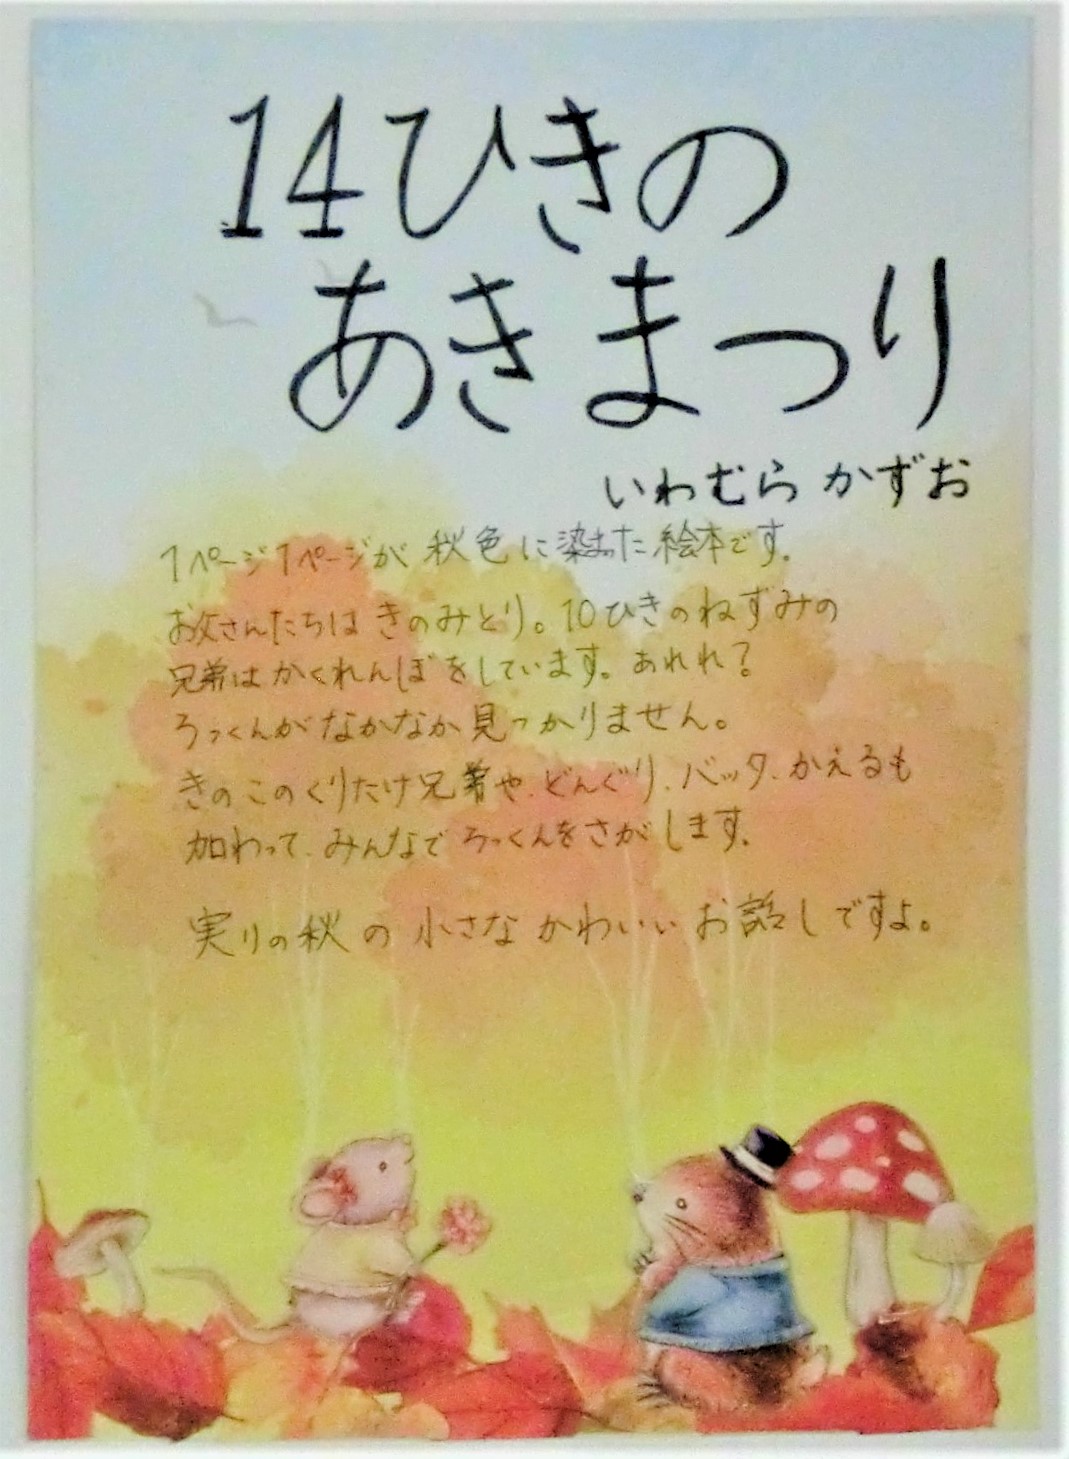 14ひきの
あきまつり
いわむら かずお
1ページ1ページが 秋色に染まった絵本です。
お父さんたちは きのみとり。10ひきのねずみの
兄弟はかくれんぼをしています。あれれ?
ろっくんがなかなか見つかりません。
きのこのくりたけ兄弟や、どんぐり、バッタ、かえるも
加わって、みんなで ろっくんをさがします。
実りの秋の 小さな かわいい お話しですよ。